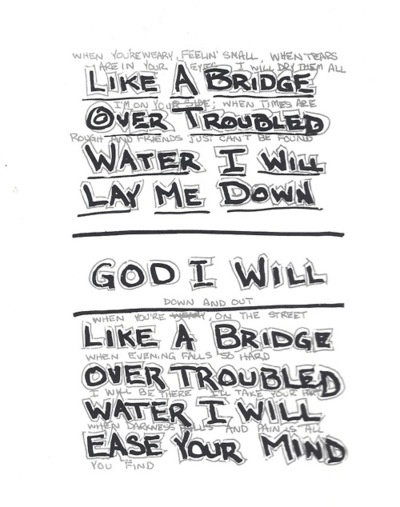 WHEN YOU'RE WEARY, FEELIN' SMALL, WHEN TEARS
ARE IN YOUR EYES I WILL DRY THEM ALL
LIKE A BRIDGE
I'M ON YOUR SIDE; WHEN TIMES ARE
OVER TROUBLED
ROUGH AND FRIENDS JUST CAN'T BE FOUND
WATER I WILL
LAY ME DOWN
GOD I WILL
DOWN AND OUT
WHEN YOU'RE WEARY, ON THE STREET
LIKE A BRIDGE
WHEN EVENING FALLS SO HARD
OVER TROUBLED
I WILL BE THERE I'LL TAKE YOUR
WATER I WILL
WHEN DARKNESS FALLS AND PAIN IS ALL
EASE YOUR MIND
YOU FIND